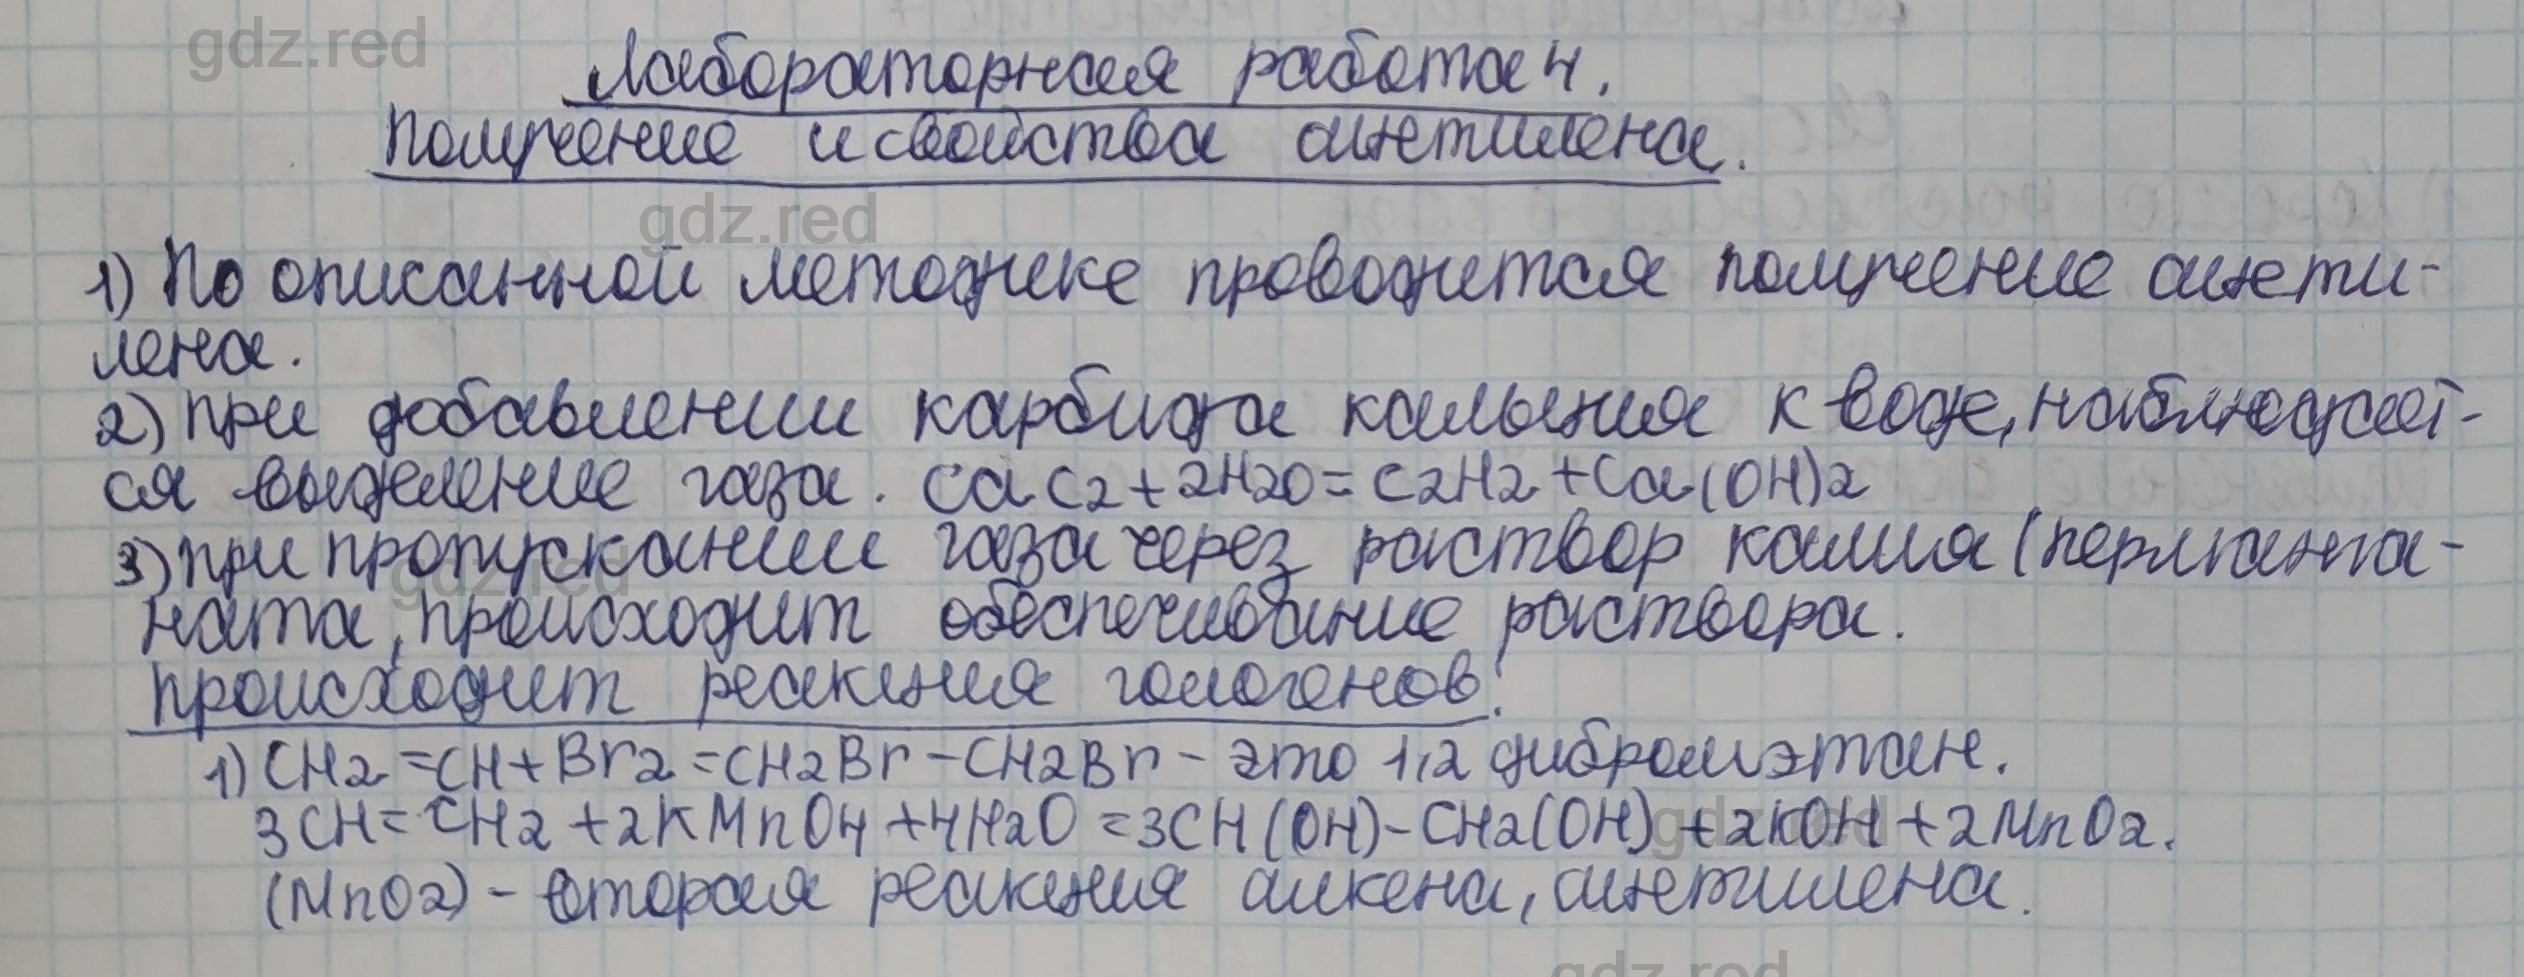 gdz.red
Лабораторная работа 4.
Получение и свойства ацетилена.
gdz.red
1) По описанной методике проводится получение ацети-
лена.
2) При добавлении карбида кальция к воде, наблюдает-
ся выделение газа. CaC2+2H2O=C2H2+Ca(OH)2
3) При пропускании газа через раствор калия (перманга-
gdz.red
ната, происходит обеспечивание раствора.
Происходит реакция гологенов.
1) CH2=CH+Br2=CH2Br-CH2Br- это 1,2 дибромэтан.
3CH=CH2+2KMnO4+4H2O=3CH(OH)-CH2(OH)+2KOH+2MnO2.
gdz.red
(MnO2)- вторая реакция алкена, ацетилена.
gdz.red